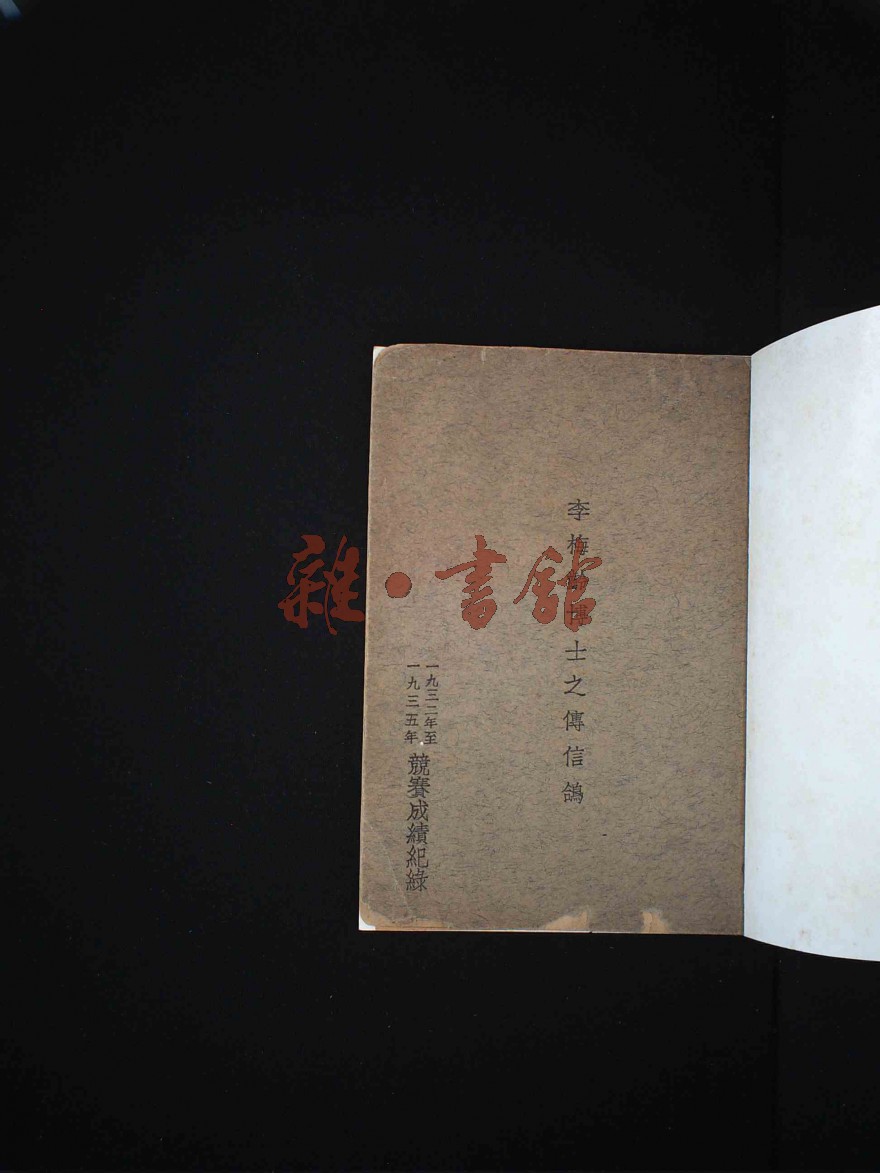 李梅齡博士之傳信鴿
一九三二年至
一九三五年
競賽成績紀綠
雜·書館